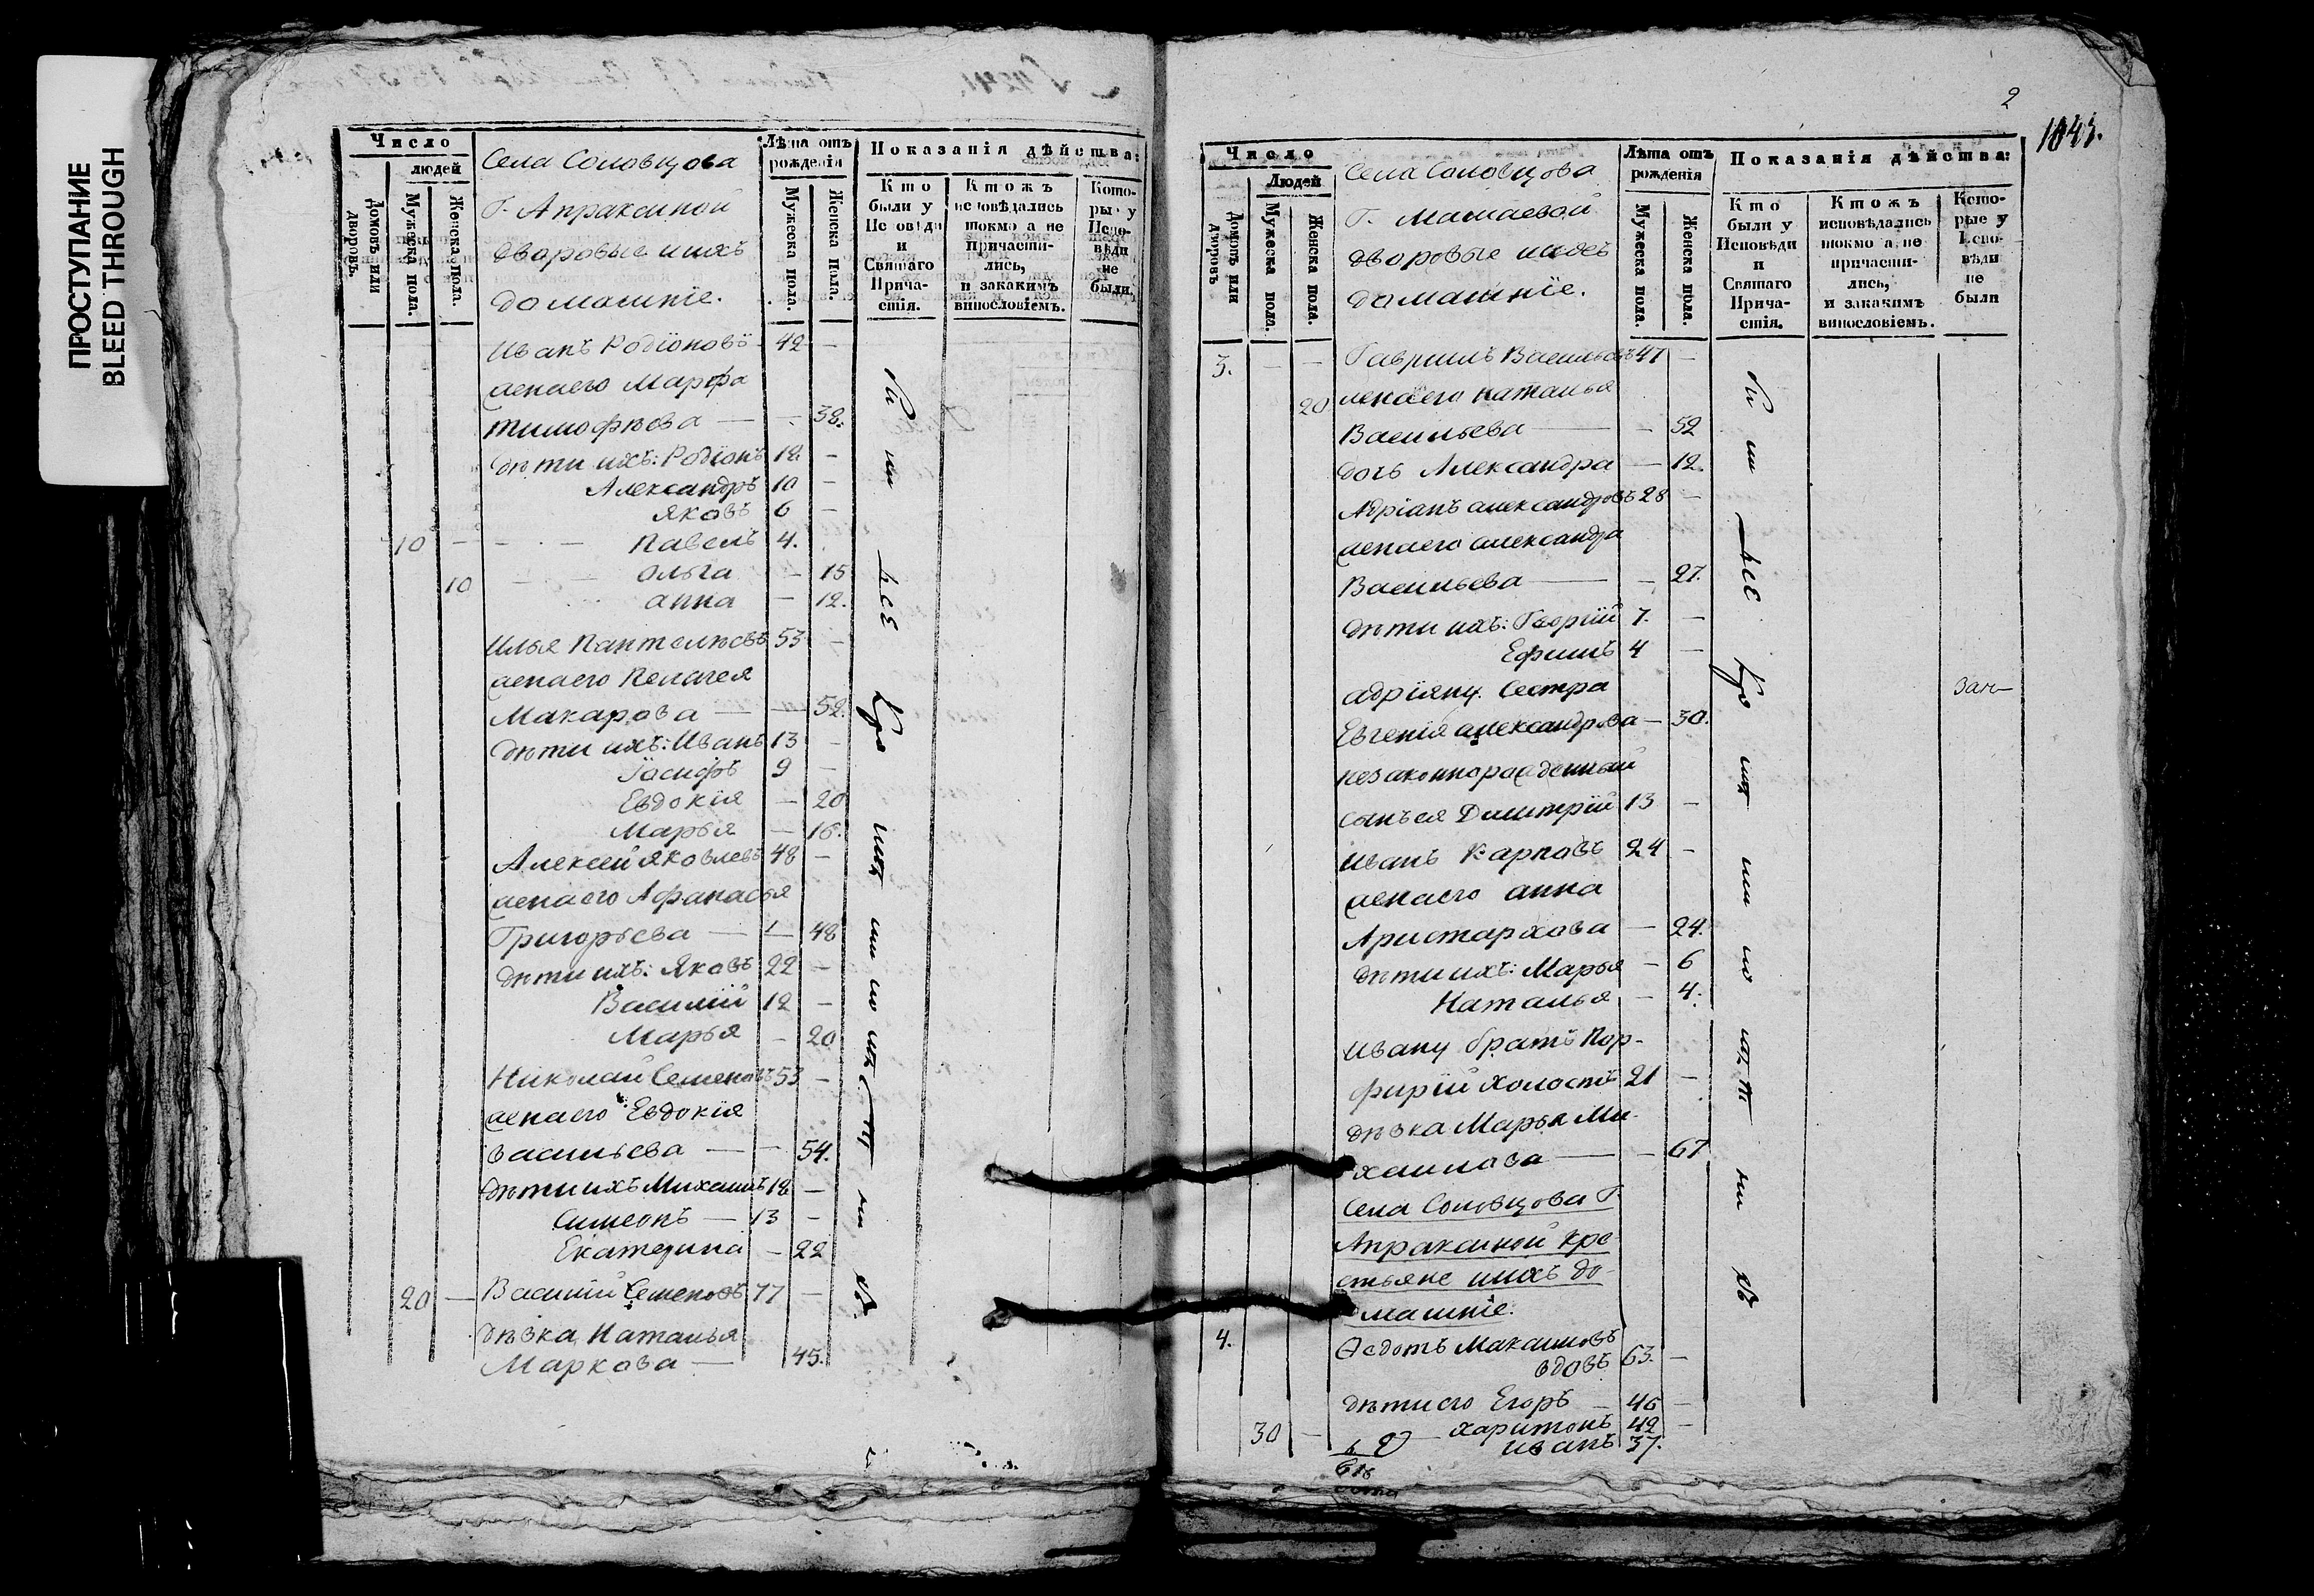 ПРОСТУПАНИЕ
BLEED THROUGH
Число
людей
Домовъ или дворовъ.
Мужеска пола.
Женска пола.
Села Соловцова
Г. Апраксиной
дворовые ихъ
домашніе.
Лѣта отъ
рожденія
Мужеска пола.
Женска пола.
Показанія дѣйства:
Кто
были у
Исповѣди
и
Святаго
Прича-
стія.
Ктожъ
исповѣдались
токмо а не
причасти-
лись,
и закакимъ
винословіемъ.
Кото-
рые у
Испо-
вѣди
не
были.
Иванъ Родіоновъ 42 —
жена его Марфа
Тимофѣева — 38.
дѣти ихъ: Родіонъ 12. —
Александръ 10 —
Яковъ 6 —
10 — Павелъ 4.
10 Ольга — 15
Анна — 12.
Илья Пантелѣевъ 53 —
жена его Пелагея
Макарова — 52.
дѣти ихъ: Иванъ 13 —
Іосифъ 9 —
Евдокія — 20
Марья — 16.
Алексей Яковлевъ 48 —
жена его Афанасья
Григорьева — 48
дѣти ихъ: Яковъ 22 —
Василій 12 —
Марья — 20
Николай Семеновъ 53 —
жена его Евдокія
Васильева — 54.
дѣти ихъ Михаилъ 18 —
Симеонъ — 13 —
Екатерина — 22
20 — Василій Семеновъ 77 —
дѣвка Наталья
Маркова — 45.
2
1843.
Число
Людей
Домовъ или дворовъ
Мужеска пола.
Женска пола.
Села Соловцова
Г. Мамаевой
дворовые
домашніе.
Лѣта отъ
рожденія
Мужеска пола.
Женска пола.
Показанія дѣйства:
Кто
были у
Исповѣди
и
Святаго
Прича-
стія.
Ктожъ
исповѣдались
токмо а не
причасти-
лись,
и закакимъ
винословіемъ.
Кото-
рые у
Испо-
вѣди
не
были
3. — — Гавриилъ Васильевъ 47 —
20 жена его Наталья
Васильева — 52
дочь Александра — 12.
Адріанъ Александровъ 28 —
жена его Александра
Васильева — 27.
дѣти ихъ: Георгій 7. —
Ефимъ 4 —
Адріяну Сестра
Евгенія Александрова — 30.
незаконнорожденный
сынъ ея Димитрій 13 —
Иванъ Карповъ 24 —
жена его Анна
Аристархова — 24.
дѣти ихъ: Марья — 6
Наталья — 4.
Ивану братъ Пор-
фирій холостъ 21 —
дѣвка Марья Ми-
хаилова — 67
Села Соловцова Г.
Апраксиной кре-
стьяне ихъ до-
машніе.
4. Ѳедотъ Максимовъ
вдовъ 63. —
дѣти его Егоръ — 46 —
Харитонъ 42 —
30 — Иванъ 37.